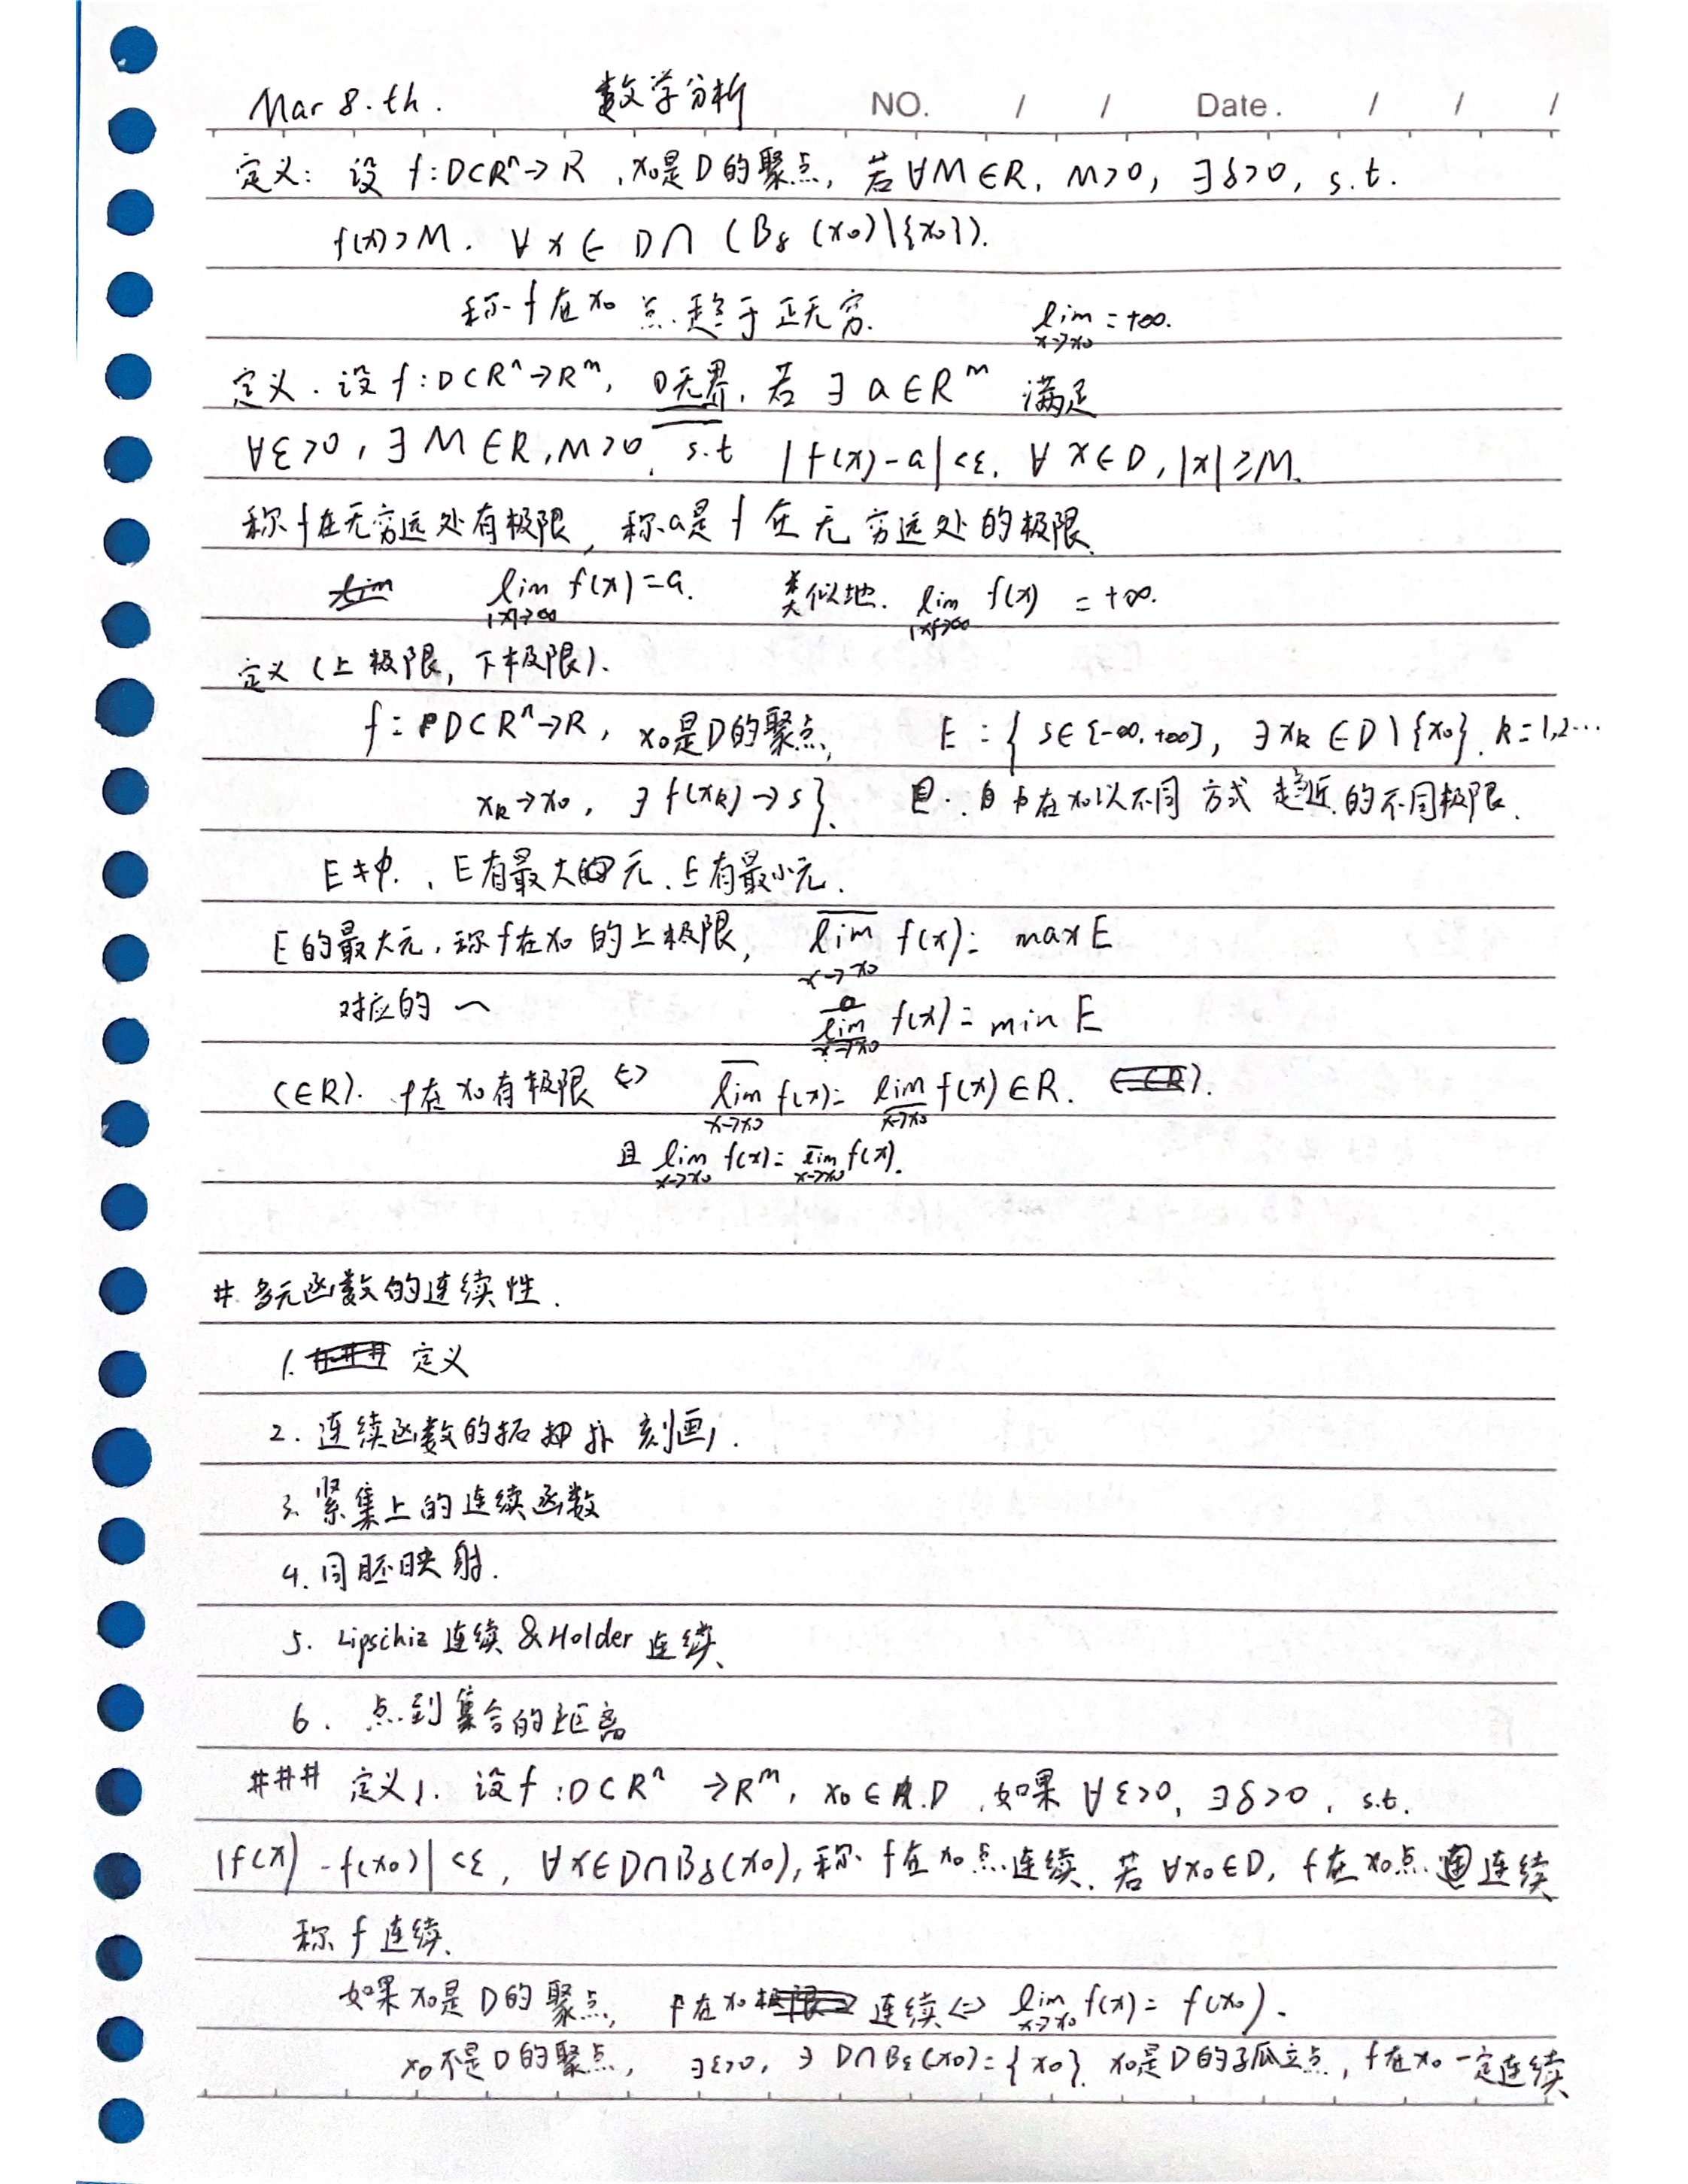 Mar 8.th. 数学分析 NO. / / Date. / / /
定义: 设 f:D⊂Rⁿ→R ,x₀是D的聚点, 若∀M∈R, M>0, ∃δ>0, s.t.
f(x)>M. ∀x∈ D∩(B_δ(x₀)\{x₀}).
称 f在x₀ 点 趋于正无穷. lim_{x→x₀} =+∞.
定义. 设 f:D⊂Rⁿ→Rᵐ, D无界, 若 ∃ a∈Rᵐ 满足
∀ε>0, ∃M∈R,M>0, s.t |f(x)-a|<ε, ∀x∈D,|x|≥M.
称f在无穷远处有极限, 称a是f在无穷远处的极限.
lim_{|x|→∞} f(x)=a. 类似地. lim_{|x|→∞} f(x) =+∞.
定义(上极限, 下极限).
f: D⊂Rⁿ→R, x₀是D的聚点, E:={ s∈[-∞,+∞], ∃x_k∈D\{x₀}, k=1,2…
x_k→x₀, ∋ f(x_k)→s}. 在x₀以不同方式趋近的不同极限.
E≠∅., E有最大的元. E有最小元.
E的最大元,称f在x₀的上极限, \overline{lim}_{x→x₀} f(x)= max E
对应的 ~ \underline{lim}_{x→x₀} f(x)= min E
(∈R). f在x₀有极限 ⇔ \overline{lim}_{x→x₀} f(x)= \underline{lim}_{x→x₀} f(x)∈R.
且 lim_{x→x₀} f(x)= \overline{lim}_{x→x₀} f(x).
# 多元函数的连续性.
1. 定义
2. 连续函数的拓扑刻画.
3. 紧集上的连续函数
4. 同胚映射.
5. Lipschiz 连续 & Holder 连续
6. 点到集合的距离
### 定义1. 设f:D⊂Rⁿ→Rᵐ, x₀∈D ,如果 ∀ε>0, ∃δ>0, s.t.
|f(x)-f(x₀)|<ε, ∀x∈D∩B_δ(x₀), 称f在x₀点连续. 若∀x₀∈D, f在x₀点连续
称 f 连续.
如果x₀是D的聚点, f在x₀连续⇔ lim_{x→x₀} f(x)= f(x₀).
x₀不是D的聚点, ∃ε>0, ∋ D∩B_ε(x₀)={x₀}. x₀是D的孤立点, f在x₀一定连续